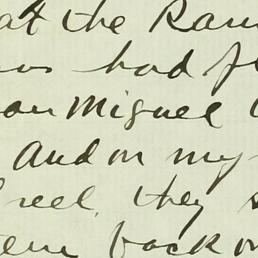 at the Ran
had f
San Miguel
and on my
reel, they s
back on